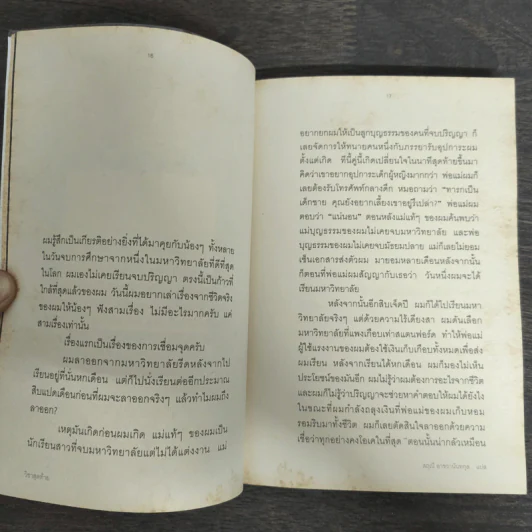 16
ผมรู้สึกเป็นเกียรติอย่างยิ่งที่ได้มาคุยกับน้องๆ ทั้งหลาย
ในวันจบการศึกษาจากหนึ่งในมหาวิทยาลัยที่ดีที่สุด
ในโลก ผมเองไม่เคยเรียนจบปริญญา ตรงนี้เป็นก้าวที่
ใกล้ที่สุดแล้วของผม วันนี้ผมอยากเล่าเรื่องจากชีวิตจริง
ของผมให้น้องๆ ฟังสามเรื่อง ไม่มีอะไรมากครับ แค่
สามเรื่องเท่านั้น
เรื่องแรกเป็นเรื่องของการเชื่อมจุดครับ
ผมลาออกจากมหาวิทยาลัยรีดหลังจากไป
เรียนอยู่ที่นั่นหกเดือน แต่ก็ไปนั่งเรียนต่ออีกประมาณ
สิบแปดเดือนก่อนที่ผมจะลาออกจริงๆ แล้วทำไมผมถึง
ลาออก?
เหตุมันเกิดก่อนผมเกิด แม่แท้ๆ ของผมเป็น
นักเรียนสาวที่จบมหาวิทยาลัยแต่ไม่ได้แต่งงาน แม่
วิชาสุดท้าย
อยากยกผมให้เป็นลูกบุญธรรมของคนที่จบปริญญา ก็
เลยจัดการให้ทนายคนหนึ่งกับภรรยารับอุปการะผม
ตั้งแต่เกิด ทีนี้คู่นี้เกิดเปลี่ยนใจในนาทีสุดท้ายขึ้นมา
คิดว่าเขาอยากอุปการะเด็กผู้หญิงมากกว่า พ่อแม่ผมก็
เลยต้องรับโทรศัพท์กลางดึก หมอถามว่า “ทารกเป็น
เด็กชาย คุณยังอยากเลี้ยงเขาอยู่รึเปล่า?” พ่อแม่ผม
ตอบว่า “แน่นอน” ตอนหลังแม่แท้ๆ ของผมค้นพบว่า
แม่บุญธรรมของผมไม่เคยจบมหาวิทยาลัย และพ่อ
บุญธรรมของผมไม่เคยจบมัธยมปลาย แม่ก็เลยไม่ยอม
เซ็นเอกสารส่งตัวผม มายอมหลายเดือนหลังจากนั้น
ก็ตอนที่พ่อแม่ผมสัญญากับเธอว่า วันหนึ่งผมจะได้
เรียนมหาวิทยาลัย
หลังจากนั้นอีกสิบเจ็ดปี ผมก็ได้ไปเรียนมหา
วิทยาลัยจริงๆ แต่ด้วยความไร้เดียงสา ผมดันเลือก
มหาวิทยาลัยที่แพงเกือบเท่าสแตนฟอร์ด ทำให้พ่อแม่
ผู้ใช้แรงงานของผมต้องใช้เงินเก็บเกือบทั้งหมดเพื่อส่ง
ผมเรียน หลังจากเรียนได้หกเดือน ผมก็มองไม่เห็น
ประโยชน์ของมันอีก ผมไม่รู้ว่าผมต้องการอะไรจากชีวิต
และผมก็ไม่รู้ว่าปริญญาจะช่วยหาคำตอบให้ผมได้ยังไง
ในขณะที่ผมกำลังถลุงเงินที่พ่อแม่ของผมเก็บหอม
รอมริบมาทั้งชีวิต ผมก็เลยตัดสินใจลาออกด้วยความ
เชื่อว่าทุกอย่างคงโอเคในที่สุด ตอนนั้นน่ากลัวเหมือน
สฤณี อาชวานันทกุล : แปล